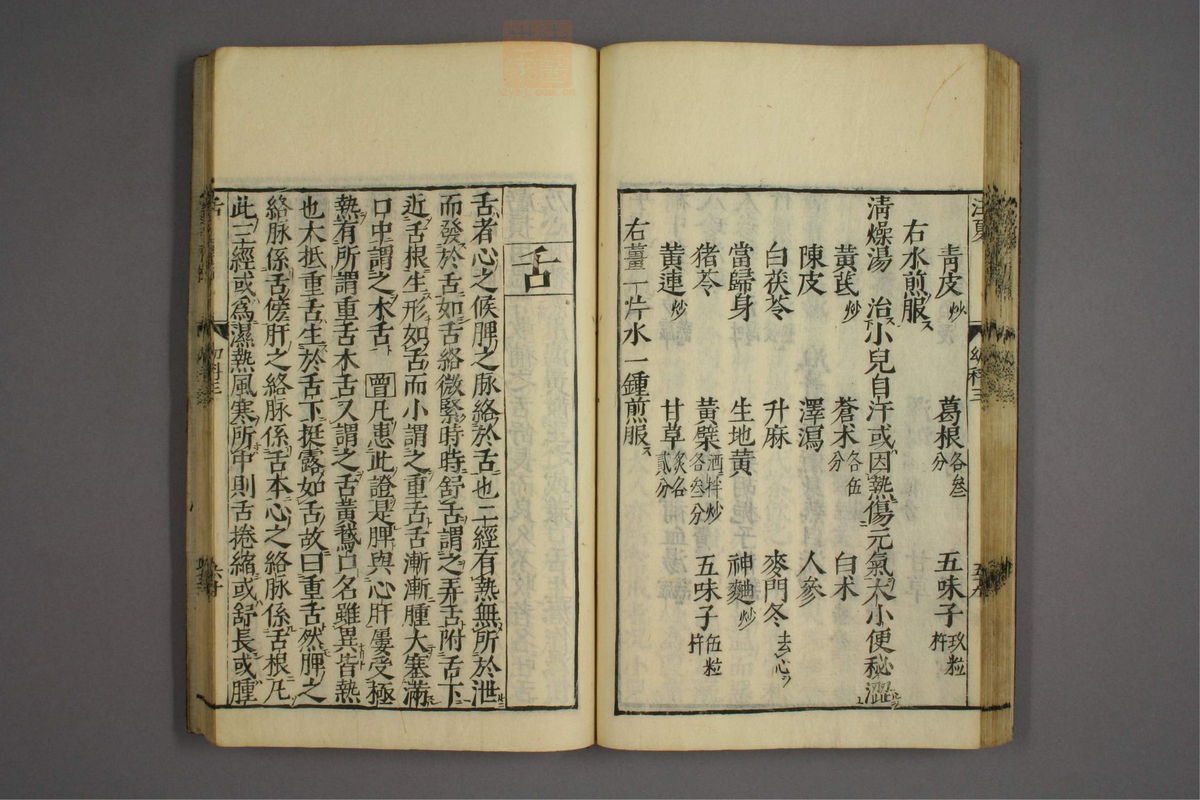 青皮炒 葛根各叁分 五味子玖粒杵
右水煎服
清燥湯 治小兒自汗或因熱傷元氣大小便秘澀
黃芪炒 蒼术各伍分 白术
陳皮 澤瀉 人參
白茯苓 升麻 麥門冬去心
當歸身 生地黃 神麯炒
猪苓 黃檗酒拌炒各叁分 五味子伍粒杵
黃連炒 甘草炙各貳分
右薑一片水一鍾煎服
舌
舌者心之候脾之脉絡於舌也二經有熱無所於泄
而發於舌如舌絡微緊時時舒舌謂之弄舌附舌下
近舌根生形如舌而小謂之重舌舌漸漸腫大塞滿
口中謂之木舌 曾凡患此證是脾與心肝屢受極
熱有所謂重舌木舌又謂之舌黃鵞口名雖異皆熱
也大抵重舌生於舌下挺露如舌故曰重舌然脾之
絡脉係舌傍肝之絡脉係舌本心之絡脉係舌根凡
此三經或爲濕熱風寒所中則舌捲縮或舒長或腫
舌
幼科三